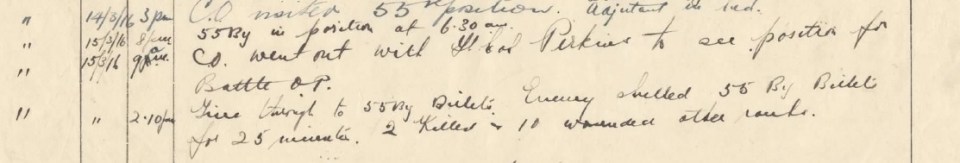 " 14/3/16 3 pm C.O visited 55th position. Adjutant in bed.
" 15/3/16 8 am 55 By in position at 6.30 am.
" 15/3/16 9 a.m. CO. went out with Perkins to see position for
Battle O.P.
" " 2.10 pm through to 55 By Billets. Enemy shelled 55 By Billets
for 25 minutes. 2 Killed & 10 wounded other ranks.